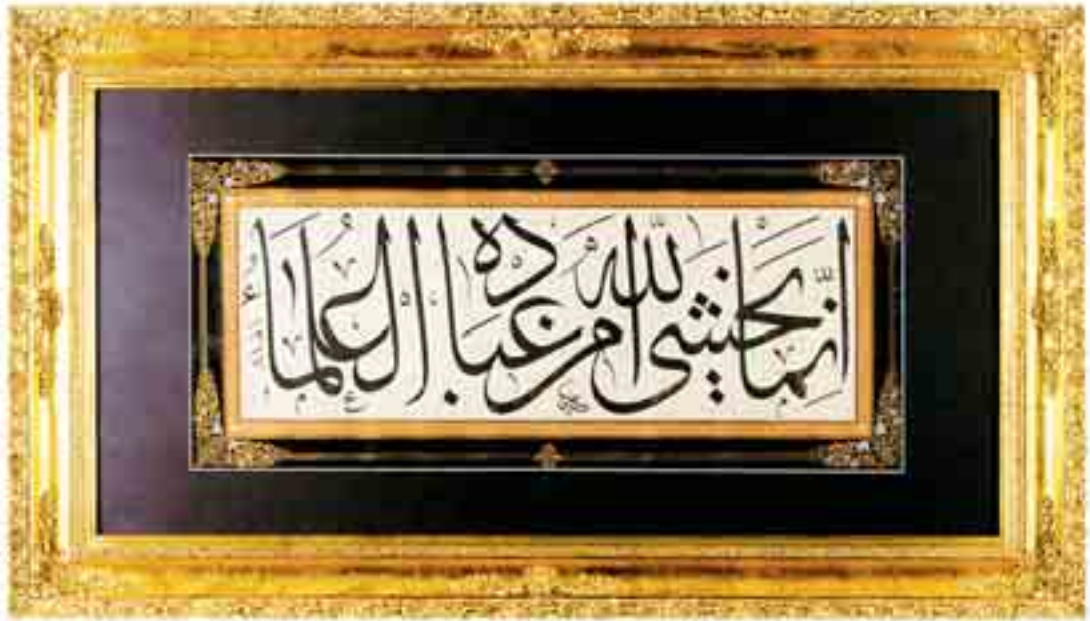 إنما يخشى الله من عباده العلماء